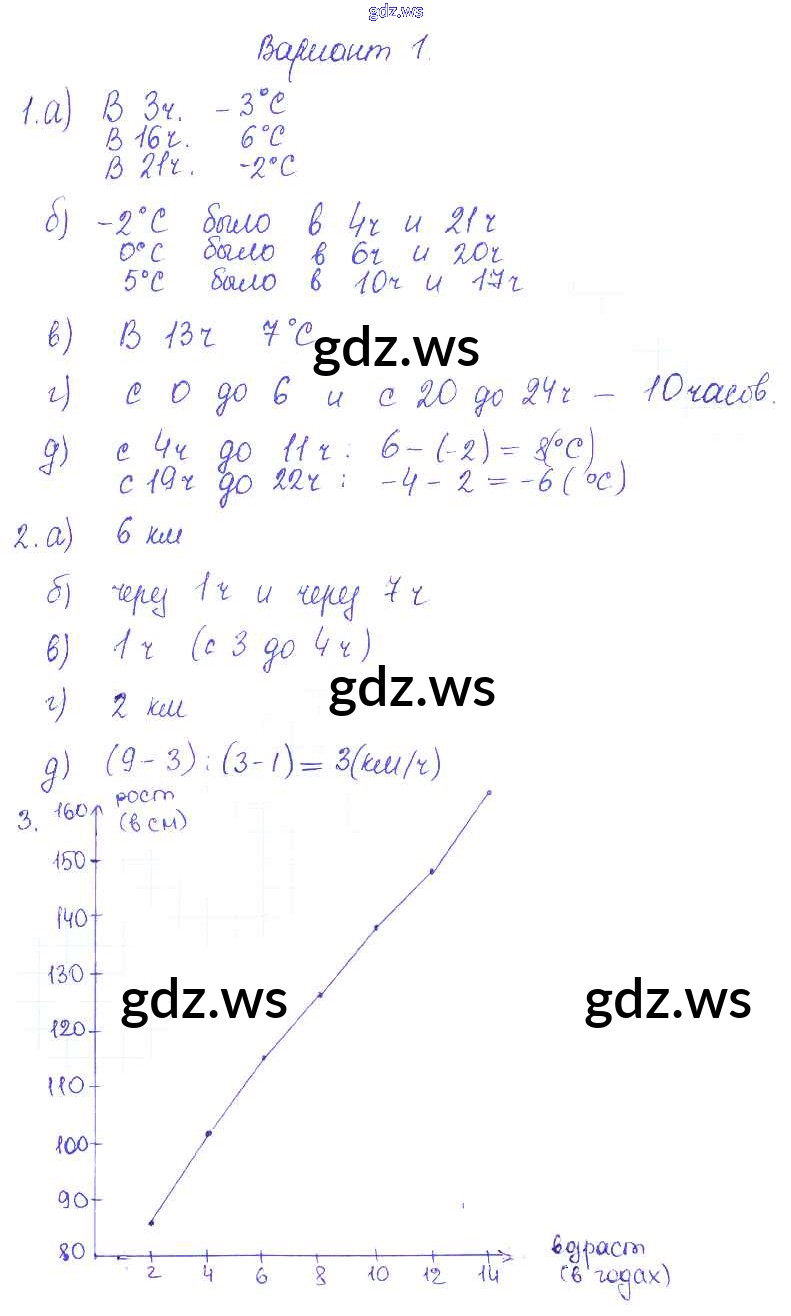 gdz.ws
Вариант 1.
1.а) В 3ч. -3°С
В 16ч. 6°С
В 21ч. -2°С
б) -2°С было в 4ч и 21ч
0°С было в 6ч и 20ч
5°С было в 10ч и 17ч
в) В 13ч 7°С
gdz.ws
г) с 0 до 6 и с 20 до 24ч – 10 часов.
д) с 4ч до 11ч: 6-(-2)=8(°С)
с 19ч до 22ч: -4-2=-6(°С)
2.а) 6 км
б) через 1ч и через 7ч
в) 1ч (с 3 до 4ч)
г) 2 км
gdz.ws
д) (9-3):(3-1)=3(км/ч)
3. 160 рост
(в см)
150
140
130
gdz.ws gdz.ws
120
110
100
90
80
2 4 6 8 10 12 14
возраст
(в годах)